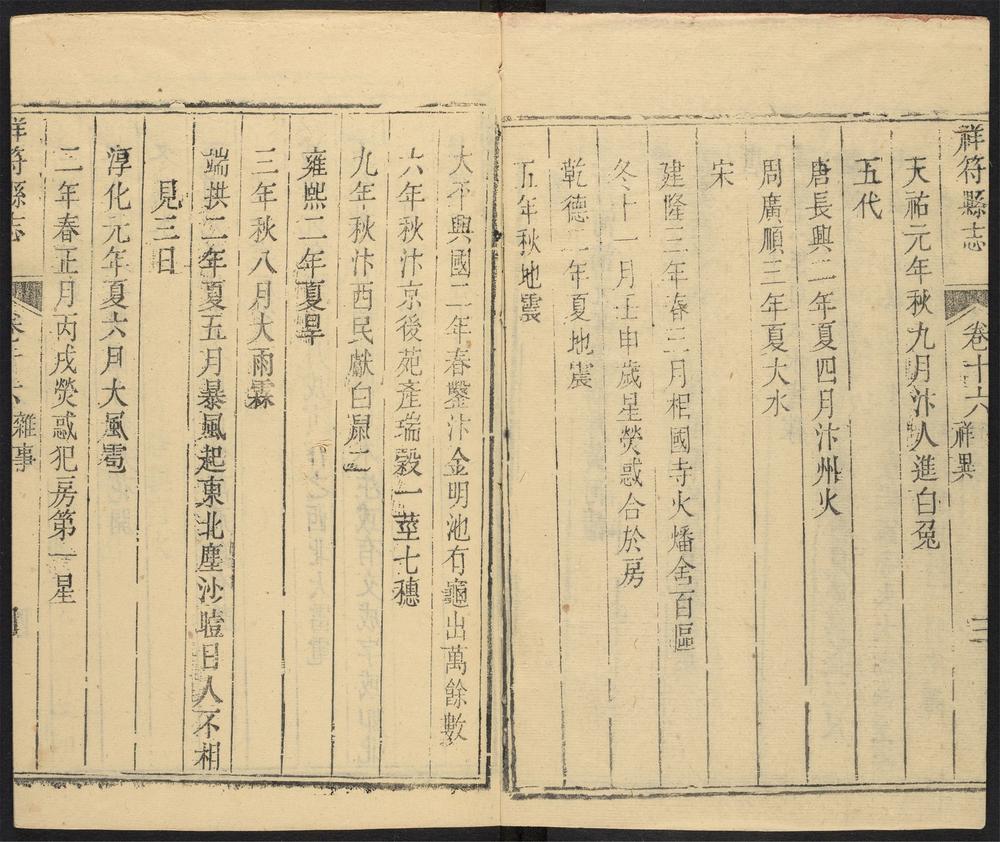 祥符縣志
卷十六
祥異
三
天祐元年秋九月汴人進白兔
五代
唐長興二年夏四月汴州火
周廣順三年夏大水
宋
建隆三年春三月相國寺火燔舍百區
冬十一月壬申歲星熒惑合於房
乾德二年夏地震
五年秋地震
太平興國二年春鑿汴金明池有龜出萬餘數
六年秋汴京後苑產瑞穀一莖七穗
九年秋汴西民獻白鼠二
雍熙二年夏旱
三年秋八月大雨霖
端拱二年夏五月暴風起東北塵沙曀日人不相
見三日
淳化元年夏六月大風雹
二年春正月丙戌熒惑犯房第一星
祥符縣志
卷十六
雜事